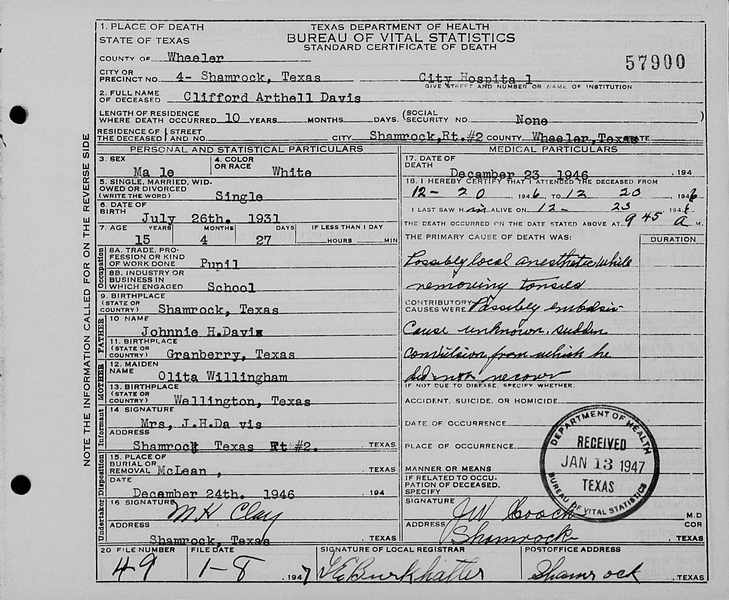 1. PLACE OF DEATH
STATE OF TEXAS
TEXAS DEPARTMENT OF HEALTH
BUREAU OF VITAL STATISTICS
STANDARD CERTIFICATE OF DEATH
COUNTY OF Wheeler
57900
CITY OR PRECINCT NO. 4- Shamrock, Texas City Hospital
GIVE STREET AND NUMBER OR NAME OF INSTITUTION
2. FULL NAME OF DECEASED Clifford Arthell Davis
LENGTH OF RESIDENCE WHERE DEATH OCCURRED 10 YEARS MONTHS DAYS. (SOCIAL SECURITY NO. None
RESIDENCE OF THE DECEASED STREET AND NO. CITY Shamrock,Rt.#2 COUNTY Wheeler,Texas
PERSONAL AND STATISTICAL PARTICULARS
3. SEX Ma le
4. COLOR OR RACE White
5. SINGLE, MARRIED, WIDOWED OR DIVORCED (WRITE THE WORD) Single
6. DATE OF BIRTH July 26th. 1931
7. AGE 15 YEARS 4 MONTHS 27 DAYS IF LESS THAN 1 DAY HOURS MIN
Occupation
8A. TRADE, PROFESSION OR KIND OF WORK DONE Pupil
8B. INDUSTRY OR BUSINESS IN WHICH ENGAGED School
9. BIRTHPLACE (STATE OR COUNTRY) Shamrock, Texas
FATHER
10 NAME Johnnie H.Davis
11. BIRTHPLACE (STATE OR COUNTRY) Granberry, Texas
MOTHER
12. MAIDEN NAME Olita Willingham
13. BIRTHPLACE (STATE OR COUNTRY) Wellington, Texas
Informant
14 SIGNATURE Mrs, J.H.Da vis
ADDRESS Shamrock Texas Rt #2. TEXAS
Undertaker Disposition
15. PLACE OF BURIAL OR REMOVAL McLean , TEXAS
DATE December 24th. 1946 194
16 SIGNATURE M H Clay
ADDRESS Shamrock, Texas TEXAS
MEDICAL PARTICULARS
17. DATE OF DEATH December 23 1946 .194
18. I HEREBY CERTIFY THAT I ATTENDED THE DECEASED FROM
12-20 1946 TO 12 20 1946
I LAST SAW him ALIVE ON 12- 23 194
THE DEATH OCCURRED ON THE DATE STATED ABOVE AT 9 45 a M.
THE PRIMARY CAUSE OF DEATH WAS: DURATION
Possibly local anesthetic, while
removing tonsils
CONTRIBUTORY CAUSES WERE Possibly
Cause unknown, sudden
convulsion from which he
did not recover
IF NOT DUE TO DISEASE, SPECIFY WHETHER:
ACCIDENT, SUICIDE, OR HOMICIDE
DATE OF OCCURRENCE
PLACE OF OCCURRENCE
MANNER OR MEANS
IF RELATED TO OCCUPATION OF DECEASED, SPECIFY
SIGNATURE J W Gooch M.D COR
ADDRESS Shamrock TEXAS
DEPARTMENT OF HEALTH
RECEIVED
JAN 13 1947
TEXAS
BUREAU OF VITAL STATISTICS
20 FILE NUMBER 49
FILE DATE 1-8 1947
SIGNATURE OF LOCAL REGISTRAR Burkhalter
POSTOFFICE ADDRESS Shamrock TEXAS
NOTE THE INFORMATION CALLED FOR ON THE REVERSE SIDE